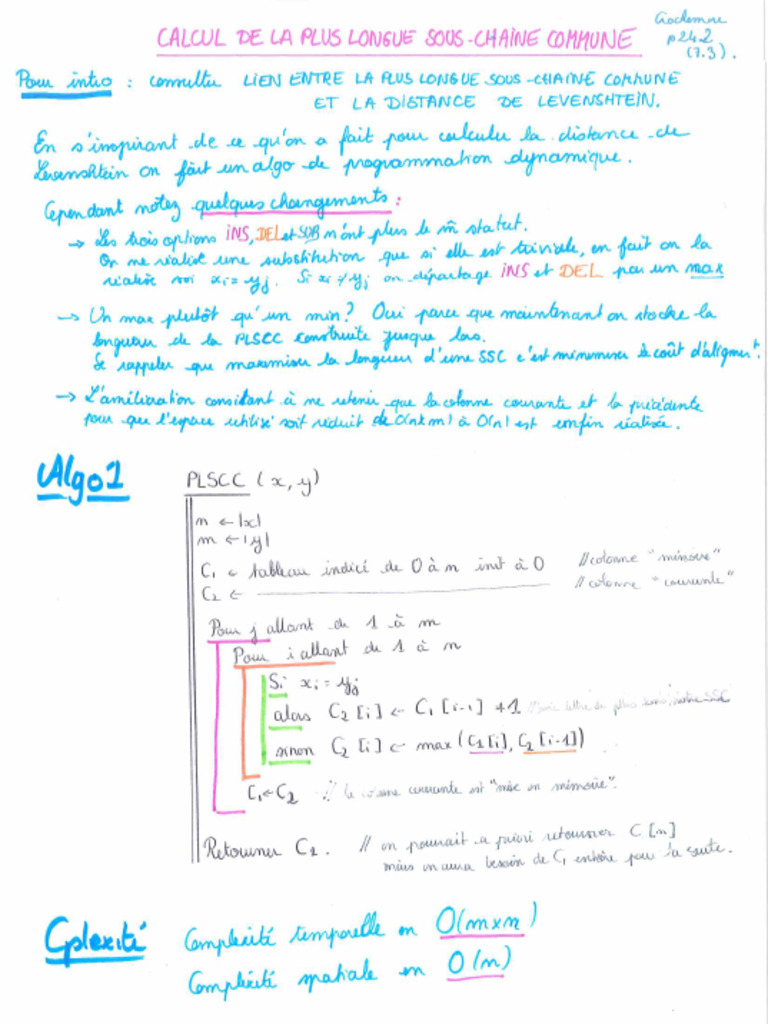 CALCUL DE LA PLUS LONGUE SOUS-CHAINE COMMUNE
p242
(7.3).
Pour intro : consulter LIEN ENTRE LA PLUS LONGUE SOUS-CHAINE COMMUNE
ET LA DISTANCE DE LEVENSHTEIN.
En s'inspirant de ce qu'on a fait pour calculer la distance de
Levenshtein on fait un algo de programmation dynamique.
Cependant notez quelques changements :
→ Les trois options INS, DEL et SUB n'ont plus le m̂ statut.
On ne réalise une substitution que si elle est triviale, en fait on la
réalise ssi xi = yj. Si xi ≠ yj on départage INS et DEL par un max
→ Un max plutôt qu'un min? Oui parce que maintenant on stocke la
longueur de la PLSCC construite jusque lors.
Se rappeler que maximiser la longueur d'une SSC c'est minimiser le coût d'alignt.
→ L'amélioration consistant à ne retenir que la colonne courante et la précédente
pour que l'espace utilisé soit réduit de O(n×m) à O(n) est enfin réalisée.
Algo1
PLSCC (x, y)
n ← |x|
m ← |y|
C1 ← tableau indicé de 0 à n init à 0 //colonne "mémoire"
C2 ← ———— //colonne "courante"
Pour j allant de 1 à m
Pour i allant de 1 à n
Si xi = yj
alors C2 [i] ← C1 [i-1] +1 // lettre de plus dans notre SSC
sinon C2 [i] ← max (C1[i], C2 [i-1])
C1 ← C2 // la colonne courante est "mise en mémoire".
Retourner C2. // on pourrait a priori retourner C [n]
mais on aura besoin de C1 entière pour la suite.
Cplexité
Complexité temporelle en O(m×n)
Complexité spatiale en O(n)